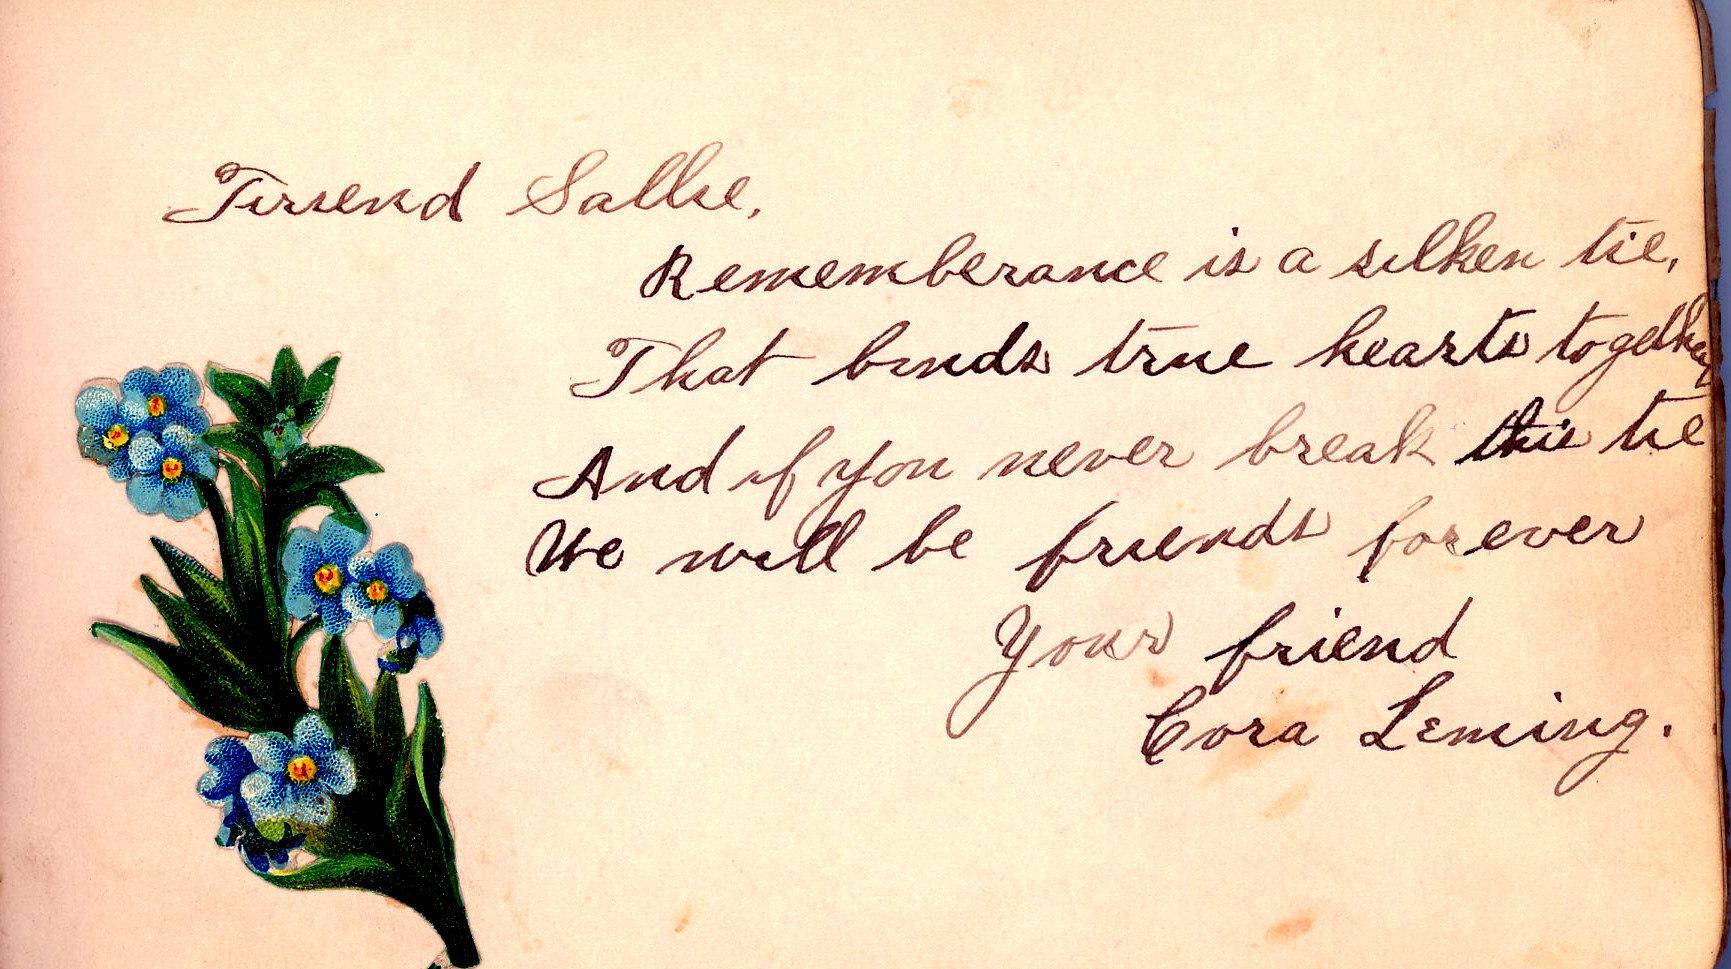 Friend Sallie,
Rememberance is a silken tie,
That binds true hearts together
And if you never break the tie
We will be friends forever
Your friend
Cora Leming.